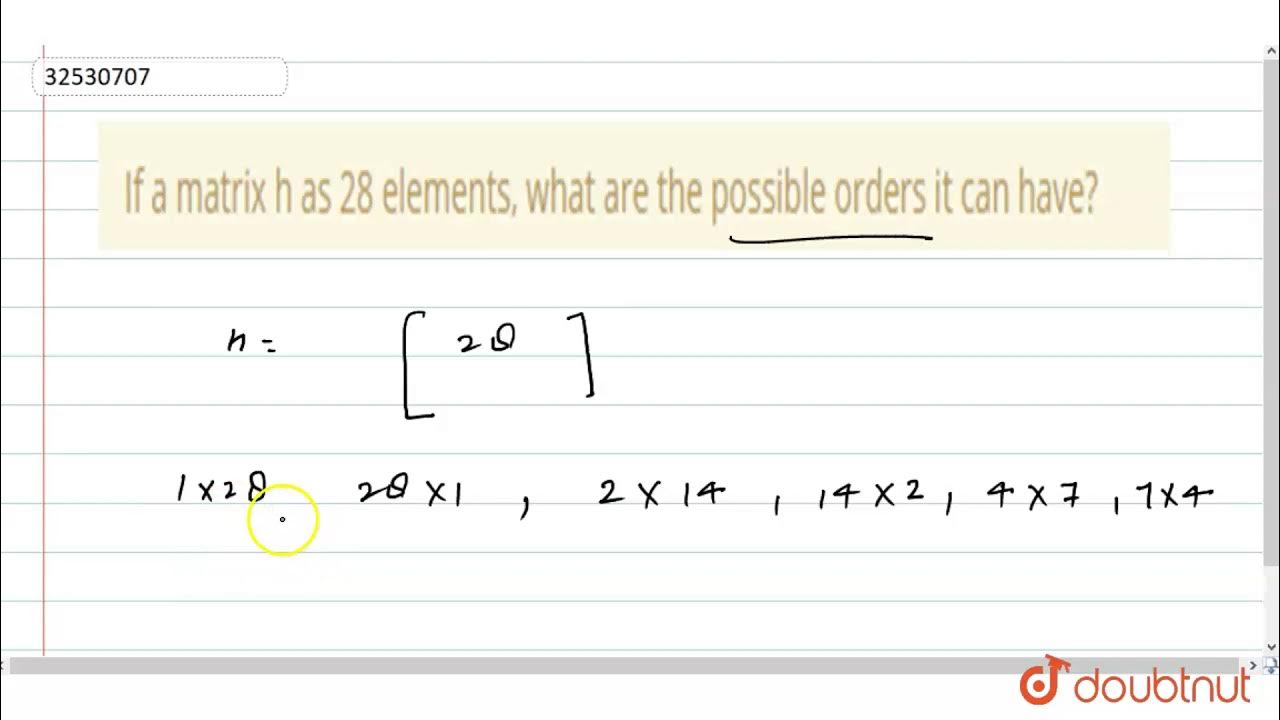 32530707
If a matrix h as 28 elements, what are the possible orders it can have?
n = [ 28 ]
1 x 28 28 x 1 , 2 x 14 , 14 x 2 , 4 x 7 , 7 x 4
doubtnut